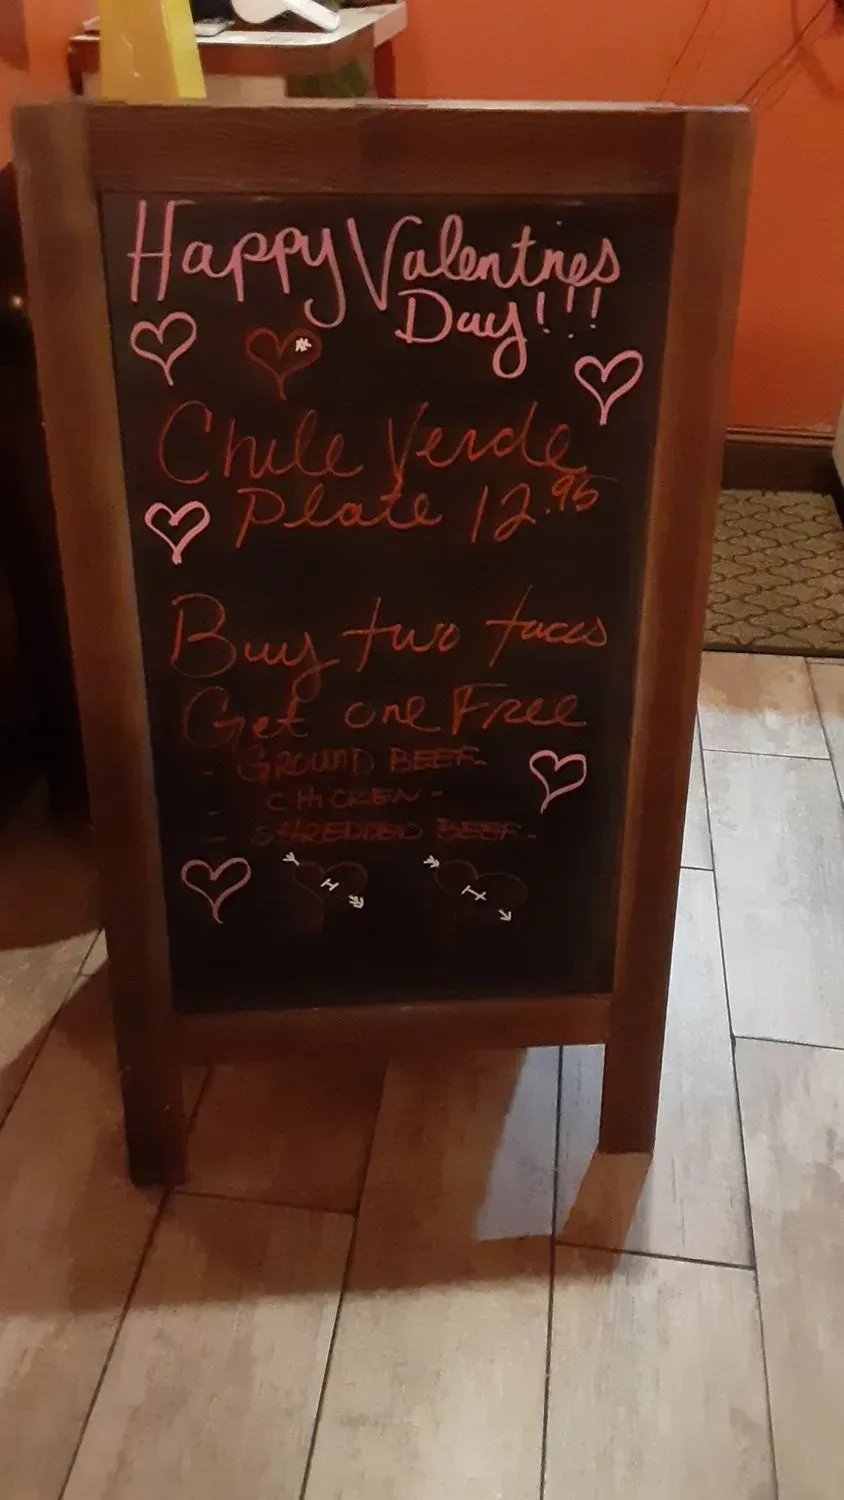 Happy Valentnes
Day!!!
Chile Verde
Plate 12.95
Buy two tacos
Get one Free
- GROUND BEEF -
- CHICKEN -
- SHREDDED BEEF -